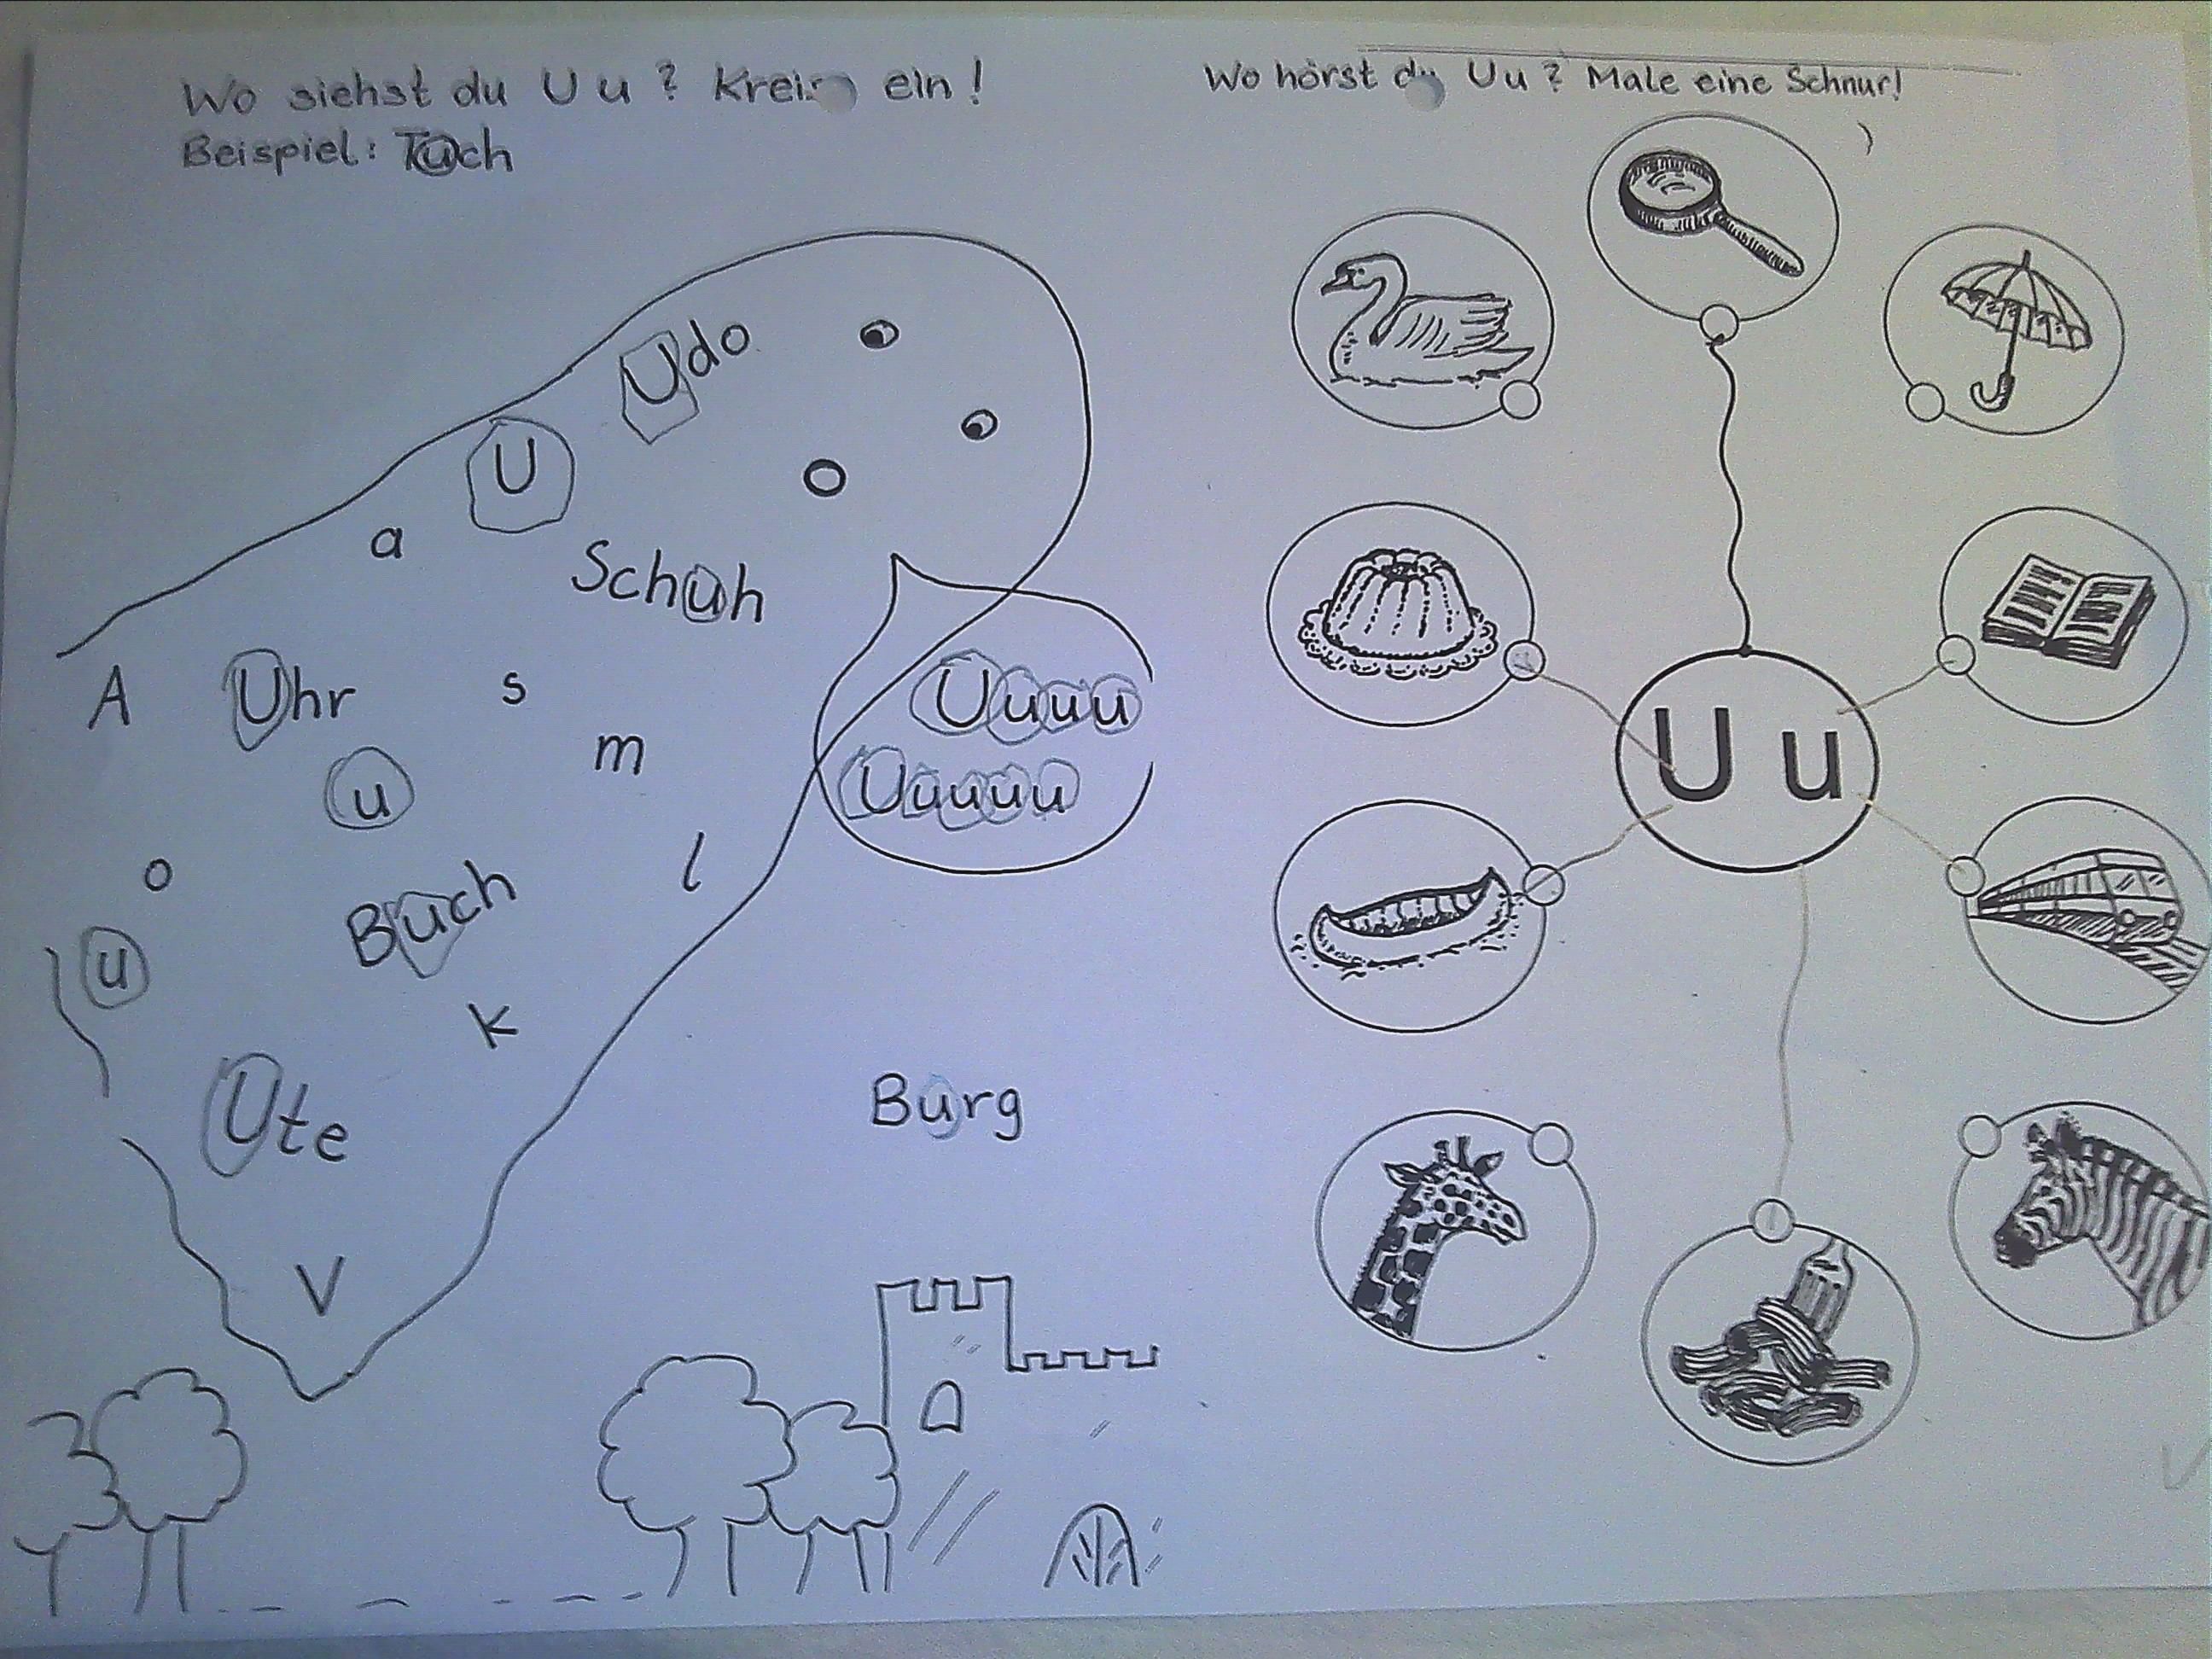 Wo siehst du U u ? Kreise ein !
Beispiel: Tuch
Udo
U
a
Schuh
A
Uhr
s
m
u
o
Buch
l
u
k
Ute
V
Uuuu
Uuuuu
Burg
Wo hörst du Uu ? Male eine Schnur!
U u